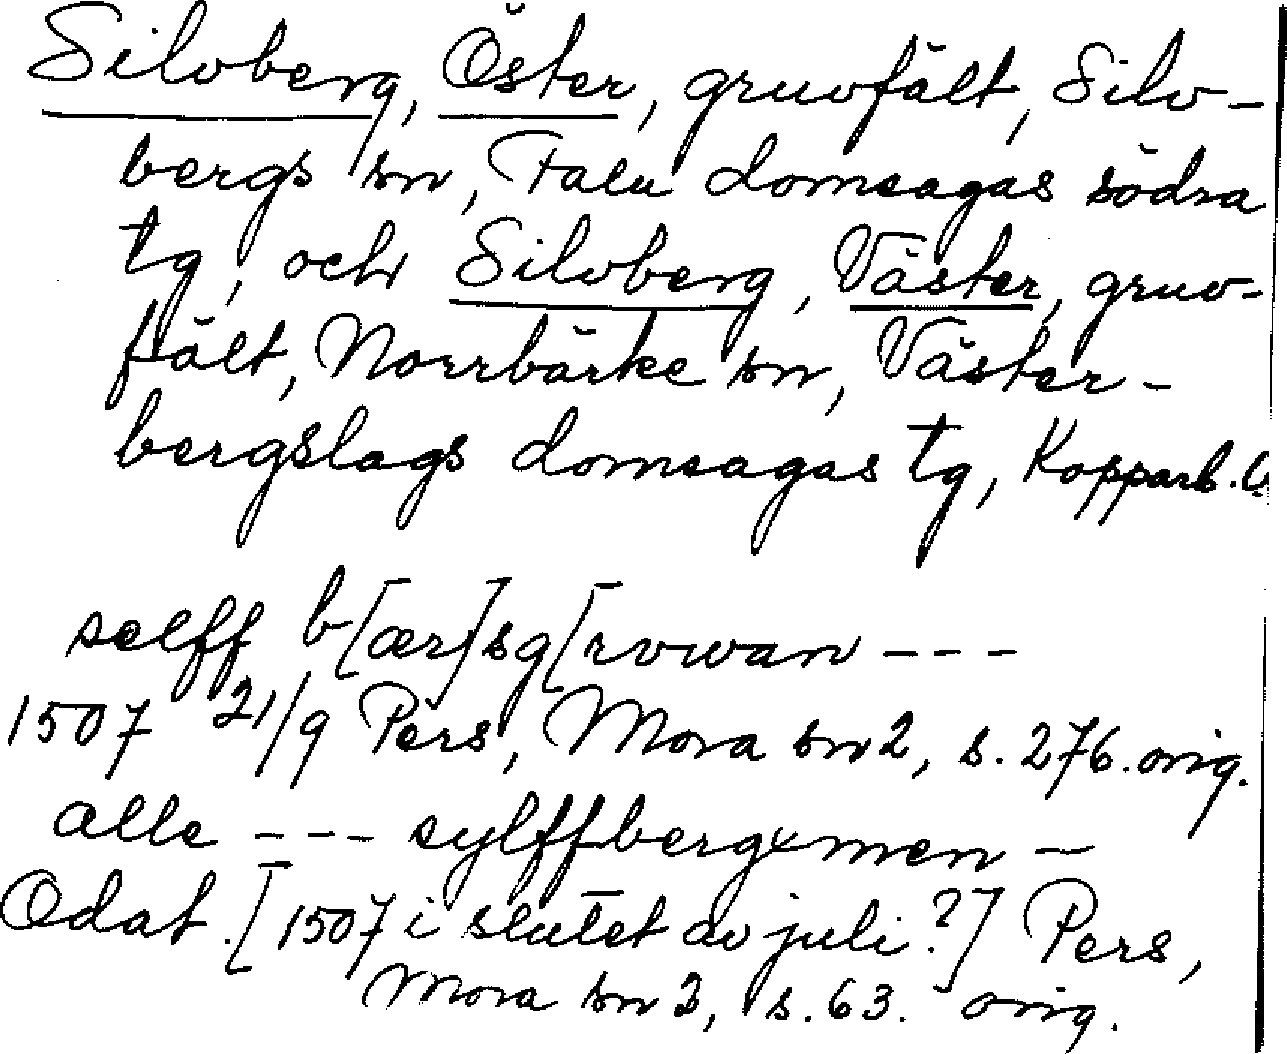 Silvberg, Öster, gruvfält, Silv-
bergs sn, Falu domsagas södra
tg, och Silvberg, Väster, gruv-
fält, Norrbärke sn, Väster-
bergslags domsagas tg, Kopparb. l.
selff b[ær]sg[rvwan ---
1507 21/9 Pers, Mora sn 2, s. 276. orig.
alle --- sylffbergxmen -
Odat. [1507 i slutet av juli?] Pers,
Mora sn 2, s. 63. orig.